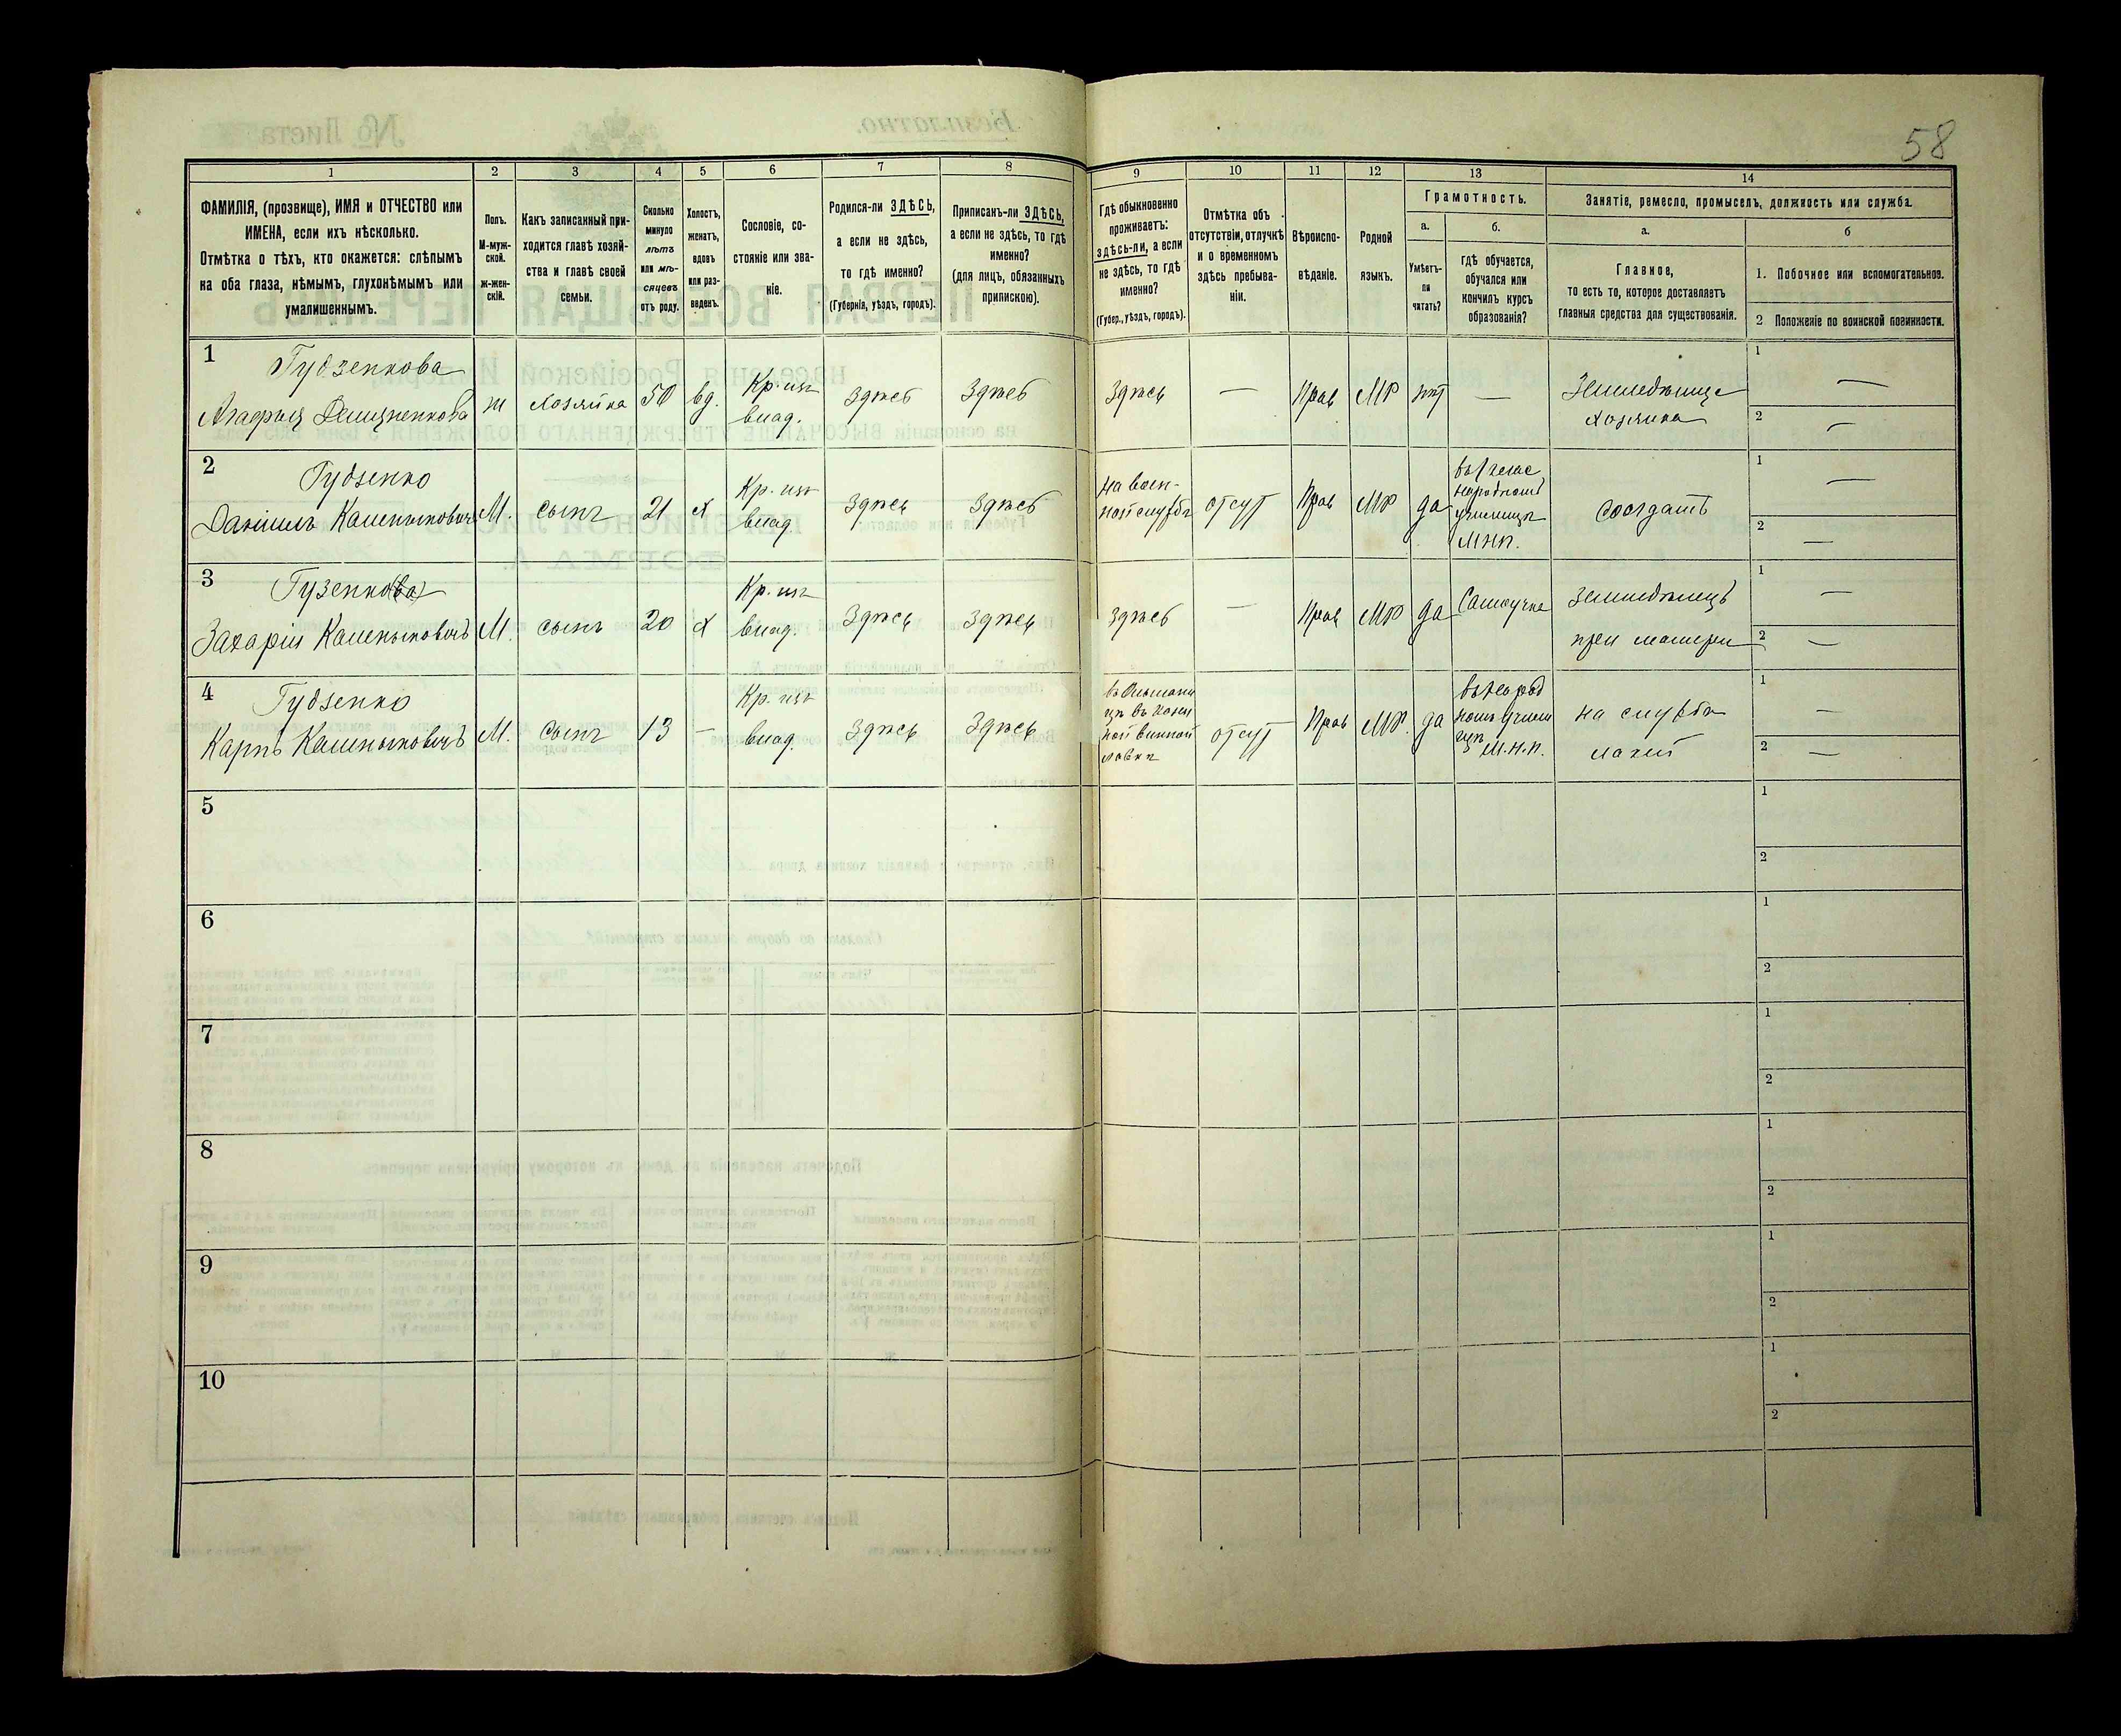 58
1 2 3 4 5 6 7 8 9 10 11 12 13 14
ФАМИЛІЯ, (прозвище), ИМЯ и ОТЧЕСТВО или
ИМЕНА, если ихъ нѣсколько.
Отмѣтка о тѣхъ, кто окажется: слѣпымъ
на оба глаза, нѣмымъ, глухонѣмымъ или
умалишеннымъ.
Полъ.
М-муж-
ской.
ж-жен-
скій.
Какъ записанный при-
ходится главѣ хозяй-
ства и главѣ своей
семьи.
Сколько
минуло
лѣтъ
или мѣ-
сяцевъ
отъ роду.
Холостъ,
женатъ,
вдовъ
или раз-
веденъ.
Сословіе, со-
стояніе или зва-
ніе.
Родился-ли ЗДѢСЬ,
а если не здѣсь,
то гдѣ именно?
(Губернія, уѣздъ, городъ).
Приписанъ-ли ЗДѢСЬ,
а если не здѣсь, то гдѣ
именно?
(для лицъ, обязанныхъ
припискою).
Гдѣ обыкновенно
проживаетъ:
здѣсь-ли, а если
не здѣсь, то гдѣ
именно?
(Губер., уѣздъ, городъ).
Отмѣтка объ
отсутствіи, отлучкѣ
и о временномъ
здѣсь пребыва-
ніи.
Вѣроиспо-
вѣданіе.
Родной
языкъ.
Грамотность.
а.
Умѣетъ-
ли
читать?
б.
Гдѣ обучается,
обучался или
кончилъ курсъ
образованія?
Занятіе, ремесло, промыселъ, должность или служба.
а.
Главное,
то есть то, которое доставляетъ
главныя средства для существованія.
б
1. Побочное или вспомогательное.
2 Положеніе по воинской повинности.
1
Гудзенкова
Агафья ж хозяйка 50 вд. Кр. изъ
влад. Здѣсь Здѣсь Здѣсь — Прав МР нѣт — Земледѣлице
хозяйка
1 —
2 —
2
Гудзенко
Даніилъ М. сынъ 21 х Кр. изъ
влад Здѣсь Здѣсь На воен-
ной службѣ отсут Прав МР да
народномъ
училищѣ
МНП. солдатъ
1 —
2 —
3
Гузенко(ва)
Захарій М. сынъ 20 х Кр. изъ
влад. Здѣсь Здѣсь Здѣсь — Прав МР да Самоучка Земледѣлецъ
при матери
1 —
2 —
4
Гудзенко
Карпъ М. сынъ 13 — Кр. изъ
влад. Здѣсь Здѣсь
въ казен
ной винной
лавкѣ отсут Прав МР. да въ народ
номъ училищѣ
М.Н.П. на службѣ
1 —
2 —
5
1
2
6
1
2
7
1
2
8
1
2
9
1
2
10
1
2